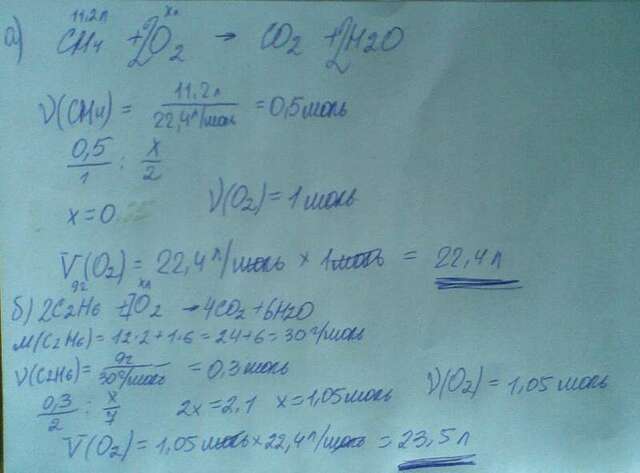 11,2л хл
а) CH4 + 2O2 → CO2 + 2H2O
ν(CH4) = 11,2л / 22,4л/моль = 0,5моль
0,5/1 : x/2
x = 0 ν(O2) = 1моль
V(O2) = 22,4л/моль × 1моль = 22,4л
9г хл
б) 2C2H6 + 7O2 → 4CO2 + 6H2O
M(C2H6) = 12·2 + 1·6 = 24 + 6 = 30г/моль
ν(C2H6) = 9г / 30г/моль = 0,3моль
0,3/2 : x/7 2x = 2,1 x = 1,05моль ν(O2) = 1,05моль
V(O2) = 1,05моль × 22,4л/моль = 23,5л